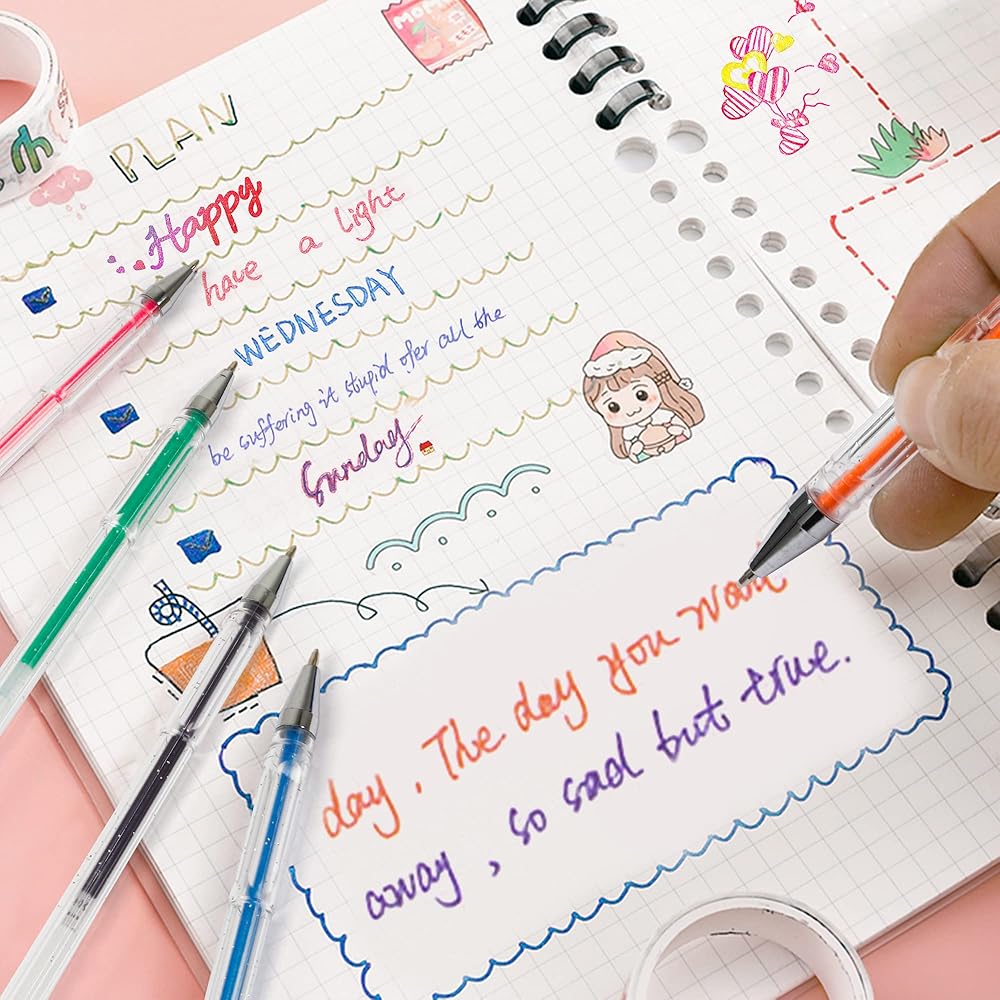 MOMO
PLAN
Happy
have a light
WEDNESDAY
be suffering it stupid ofer all the
Sunday
day, The day you
away, so sad but true.